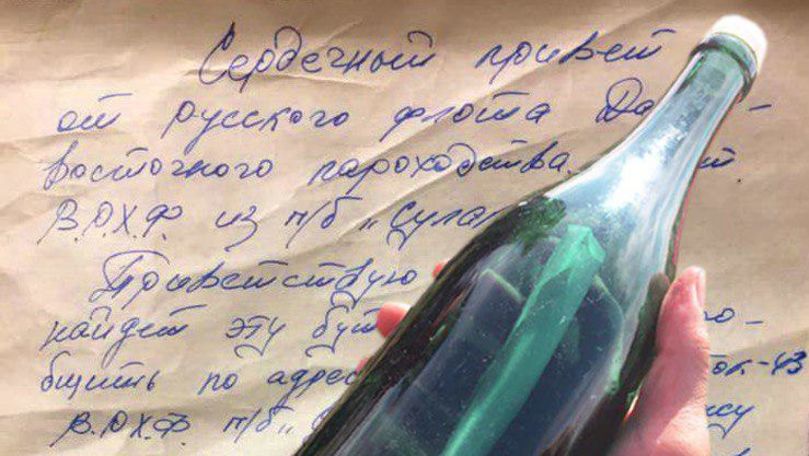 Сердечный привет
от русского флота Да -
восточного пароходства.
В.Р.Х.Ф. из п/б „Сула
Приветствую
найдет эту бут о-
бщить по адрес ток-43
В.Р.Х.Ф. п/б „